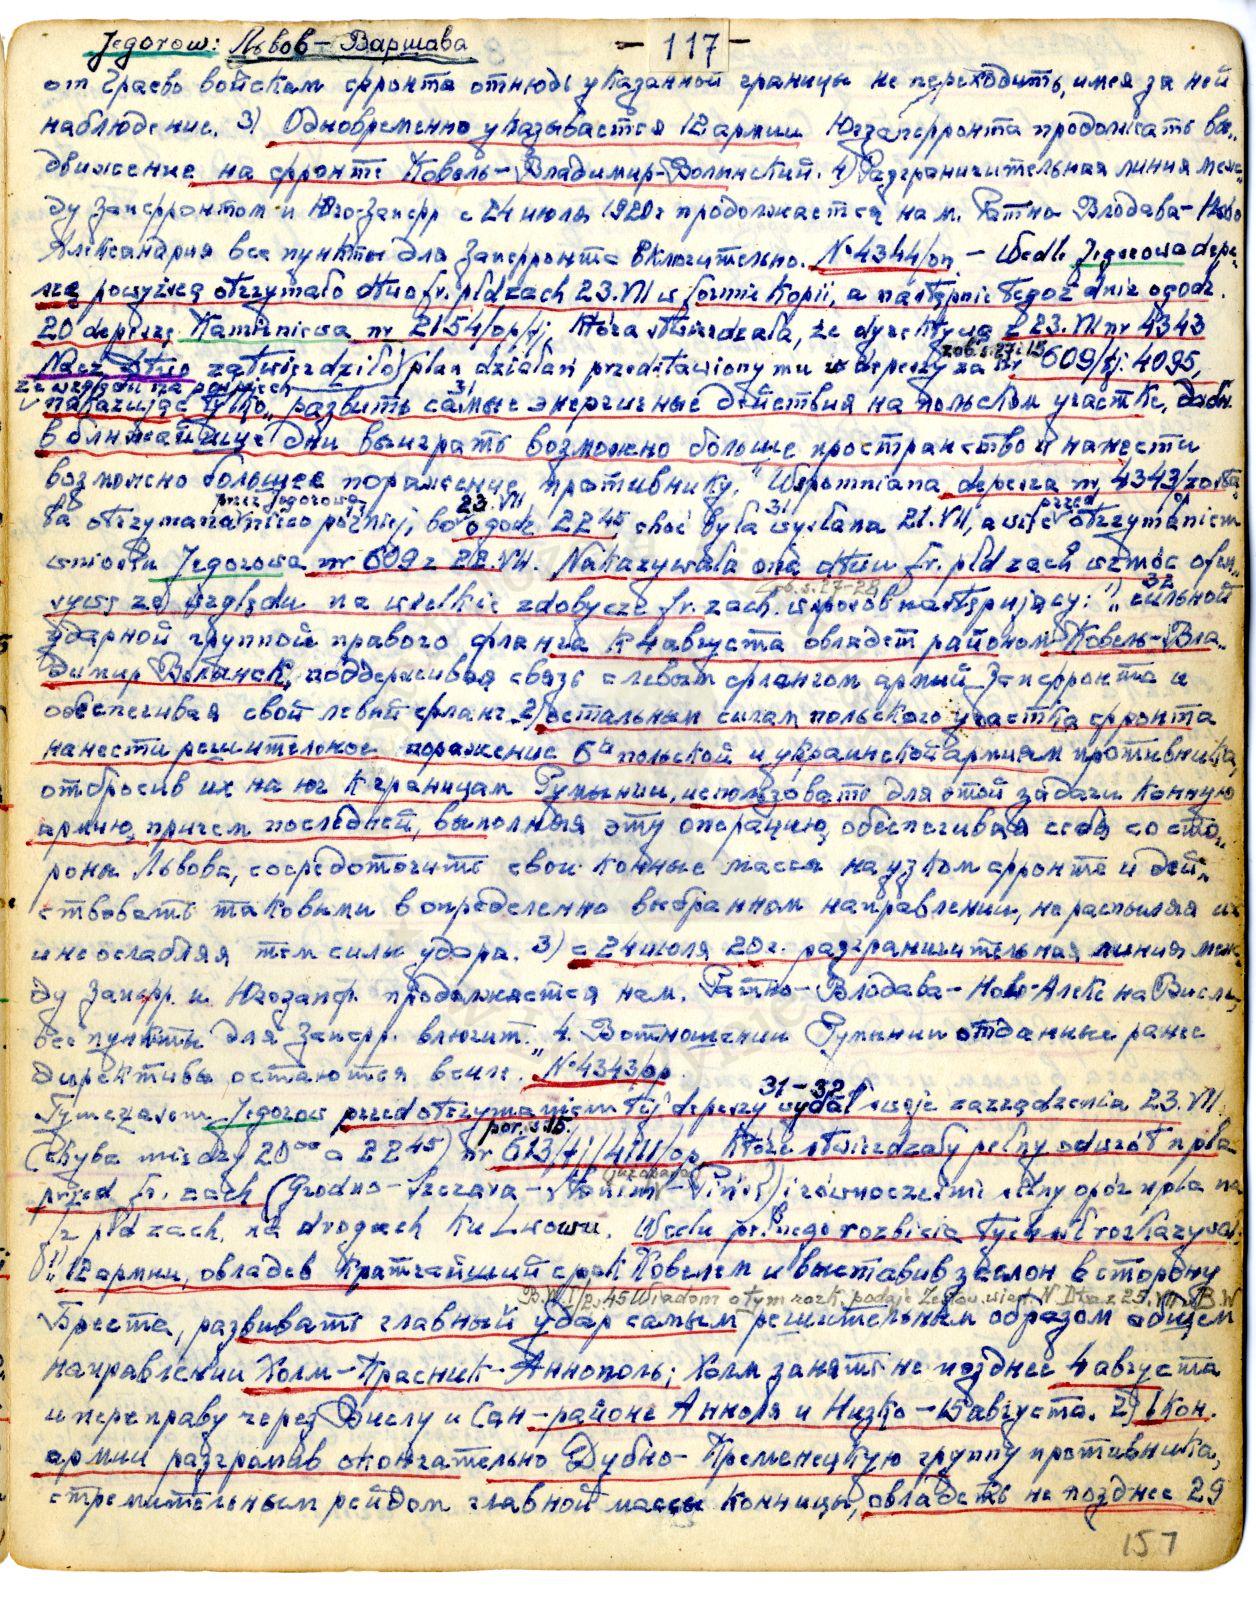 Jegorow: Львов – Варшава – 117 –
от Граево войскам фронта отнюдь указанной границы не переходить, имея за ней
наблюдение. 3) Одновременно указывается 12 армии Югзапфронта продолжать вы„
движение на фронт Ковель – Владимир-Волынский. 4) Разграничительная линия меж„
ду Запфронтом и Югозапфр с 24 июля 1920г продолжается на м. Ратно Влодава – Ново
Александрия все пункты для Запфронта включительно. № 4344/оп – Wedle Jegorowa depe„
szę powyższą otrzymało dtwo fr. płd zach 23.VII w formie kopii, a następnie tegoż dnia o godz.
20 depeszę Kamieniewa nr 2154/op/tj, która stwierdzała, że dyrektywą z 23.VII nr 4343
zob. s. 27 i 15
Nacz. Dtwo zatwierdziło plan działań przedstawiony mu w depeszy za nr 609/tj. 4095,
ze względu na pośpiech
nakazując tylko „развить самые энергичные действия на польском участке, дабы
в ближайшие дни выиграть возможно больше пространство и нанести
возможно большее поражение противнику.“ Wspomniana depesza nr 4343/ została
przez Jegorowa 23.VII przed
ła otrzymana nieco później, bo o godz 22⁴⁵ choć była wysłana 21.VII, a więc otrzymaniem
wniosku Jegorowa nr 609 z 22.VII. Nakazywała ona dtwu fr. płd zach wzmóc ofen„
zob. s. 27-28 32
sywę ze względu na wielkie zdobycze fr. zach. w sposób następujący: 1) „сильной
ударной группой правого фланга к 4 августа овладеть районом Ковель – Вла„
димир Волынск, поддерживая связь с левым флангом армий Запфронта и
обеспечивая свой левый фланг. 2) остальным силам польского участка фронта
нанести решительное поражение 6й польской и украинской армиям противника,
отбросив их на юг к границам Румынии, использовать для этой задачи конную
армию, причем последней, выполняя эту операцию, обеспечивая себя со сто„
роны Львова, сосредоточить свои конные массы на узком фронте и дей„
ствовать таковыми в определенно выбранном направлении, не распыляя их
и не ослабляя тем силы удара. 3) с 24 июля 20г. разграничительная линия меж„
ду Запфр. и Югозапф. продолжается на м. Ратно – Влодава – Ново-Алекс на Висле,
все пункты для Запфр. включит. 4. В отношении Румынии отданные ранее
директивы остаются в силе.“ № 4343/ор.
31-32
Tymczasem Jegorow przed otrzymaniem tej depeszy wydał swoje zarządzenia 23.VII
por. s. 15.
(chyba między 20⁰⁰ a 22⁴⁵) nr 613/tj/4111/op, które stwierdzały pełny odwrót npla
przed fr. zach (Grodno – Szczara – Słonim – Pińsk) i równocześnie silny opór npla na
fr płd zach. na drogach ku Lwowu. W celu rozbicia tych sił rozkazywał:
1) „12 армии, овладев кратчайший срок Ковелем и выставив заслон в сторону
B.W. I/2. 45 Wiadom o tym rozk. podaje 25.VII B.W
Бреста, развивать главный удар самым решительным образом общем
направлении Холм – Красник – Аннополь; Холм занять не позднее 4 августа
и переправу через Вислу и Сан – районе Анполя и Низко – 15 августа. 2) 1 Кон.
армии разгромив окончательно Дубно – Кременецкую группу противника,
стремительным рейдом главной массы конницы, овладеть не позднее 29
157